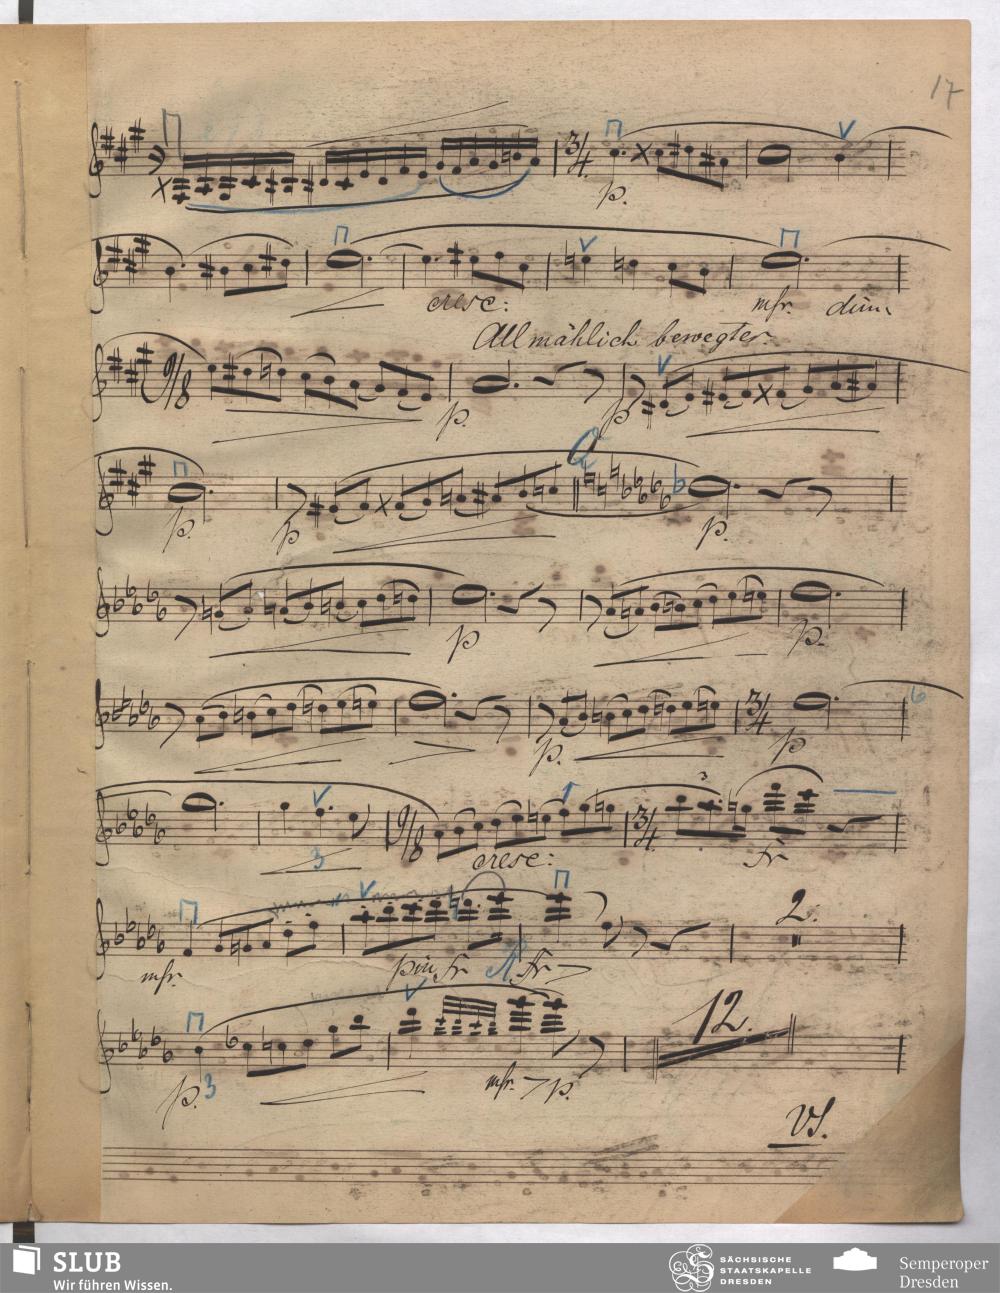 17
3/4
p.
cresc:
mfr. dim.
Allmählich bewegter.
9/8
p.
p
Q
p.
p
p.
p
p.
p.
3/4
p
6
9/8
3/4
3
3
cresc:
fr
2.
mfr.
piu fr
R
fr
12.
p.
3
mfr.
p.
VS.
SLUB
Wir führen Wissen.
SÄCHSISCHE
STAATSKAPELLE
DRESDEN
Semperoper
Dresden